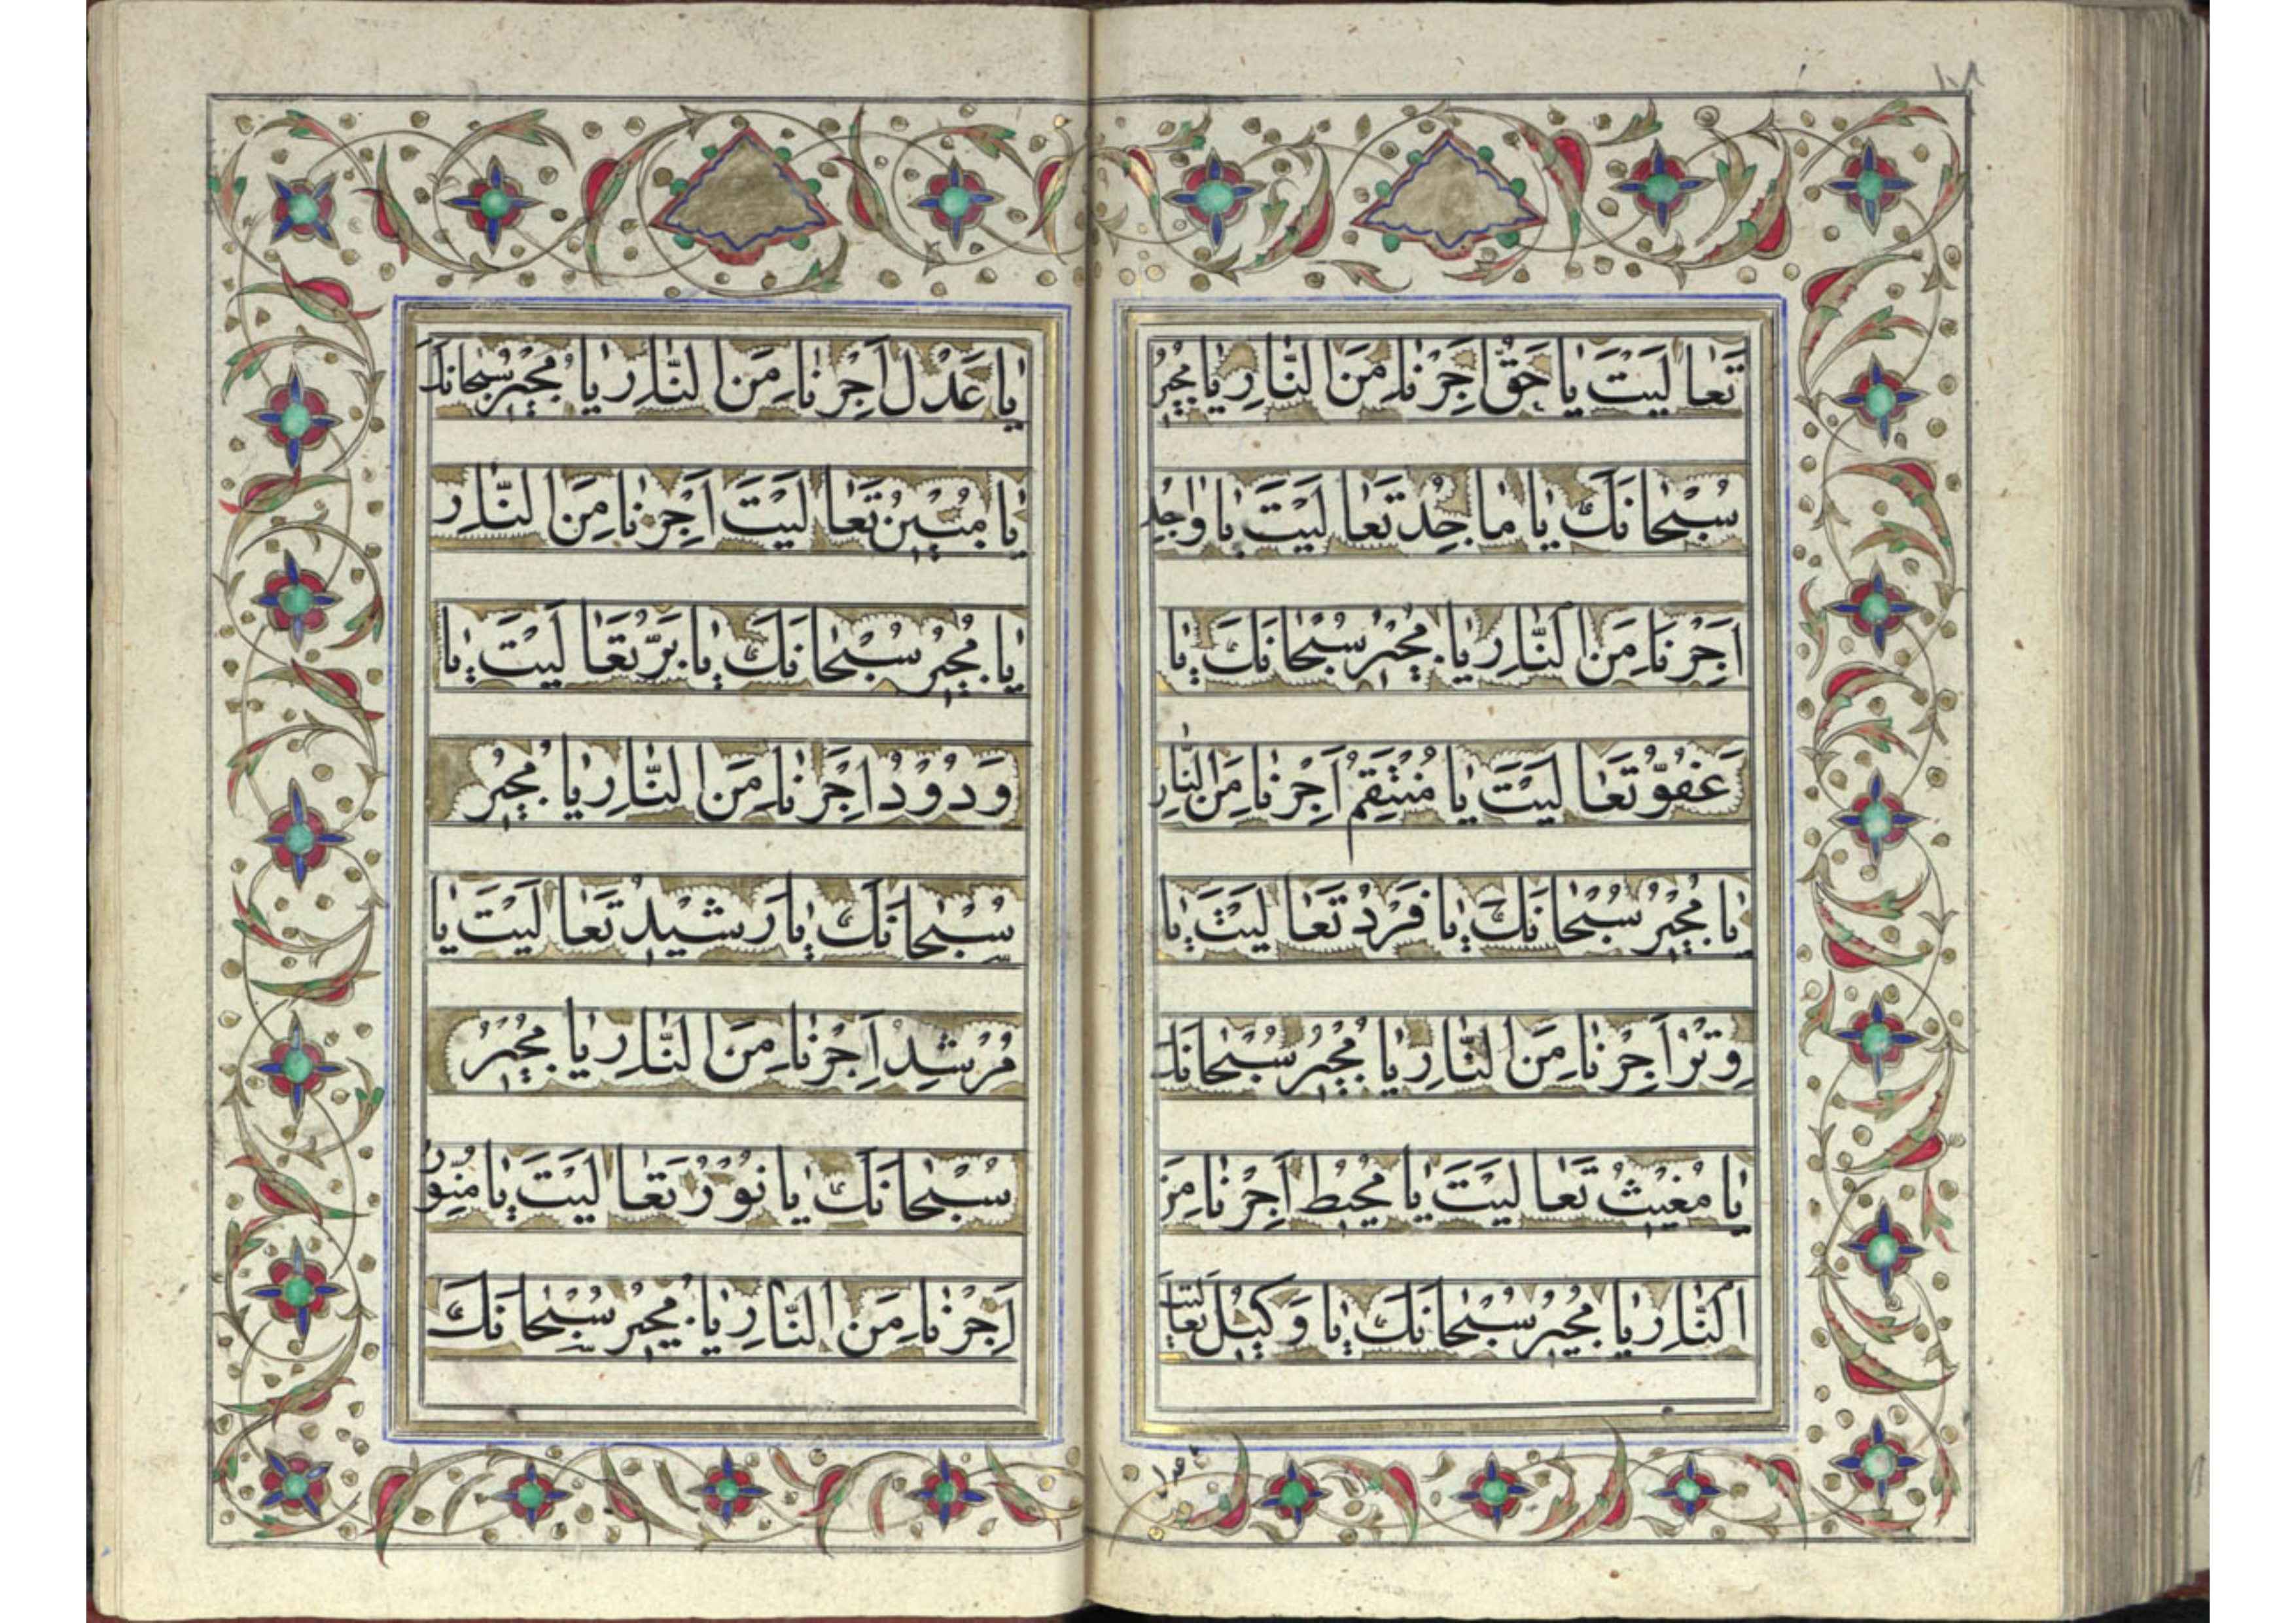 ١٠٨
تَعالَيْتَ يا حَقُّ اَجِرْنا مِنَ النّارِ يا مُجيرُ
سُبْحانَكَ يا ماجِدُ تَعالَيْتَ يا واجِدُ
اَجِرْنا مِنَ النّارِ يا مُجيرُ سُبْحانَكَ يا
عَفُوُّ تَعالَيْتَ يا مُنْتَقِمُ اَجِرْنا مِنَ النّارِ
يا مُجيرُ سُبْحانَكَ يا فَرْدُ تَعالَيْتَ يا
وِتْرُ اَجِرْنا مِنَ النّارِ يا مُجيرُ سُبْحانَكَ
يا مُغيثُ تَعالَيْتَ يا مُحيطُ اَجِرْنا مِنَ
النّارِ يا مُجيرُ سُبْحانَكَ يا وَكيلُ تَعالَيْتَ
يا عَدْلُ اَجِرْنا مِنَ النّارِ يا مُجيرُ سُبْحانَكَ
يا مُبينُ تَعالَيْتَ اَجِرْنا مِنَ النّارِ
يا مُجيرُ سُبْحانَكَ يا بَرُّ تَعالَيْتَ يا
وَدُوْدُ اَجِرْنا مِنَ النّارِ يا مُجيرُ
سُبْحانَكَ يا رَشيدُ تَعالَيْتَ يا
مُرْشِدُ اَجِرْنا مِنَ النّارِ يا مُجيرُ
سُبْحانَكَ يا نُوْرُ تَعالَيْتَ يا مُنَوِّرُ
اَجِرْنا مِنَ النّارِ يا مُجيرُ سُبْحانَكَ